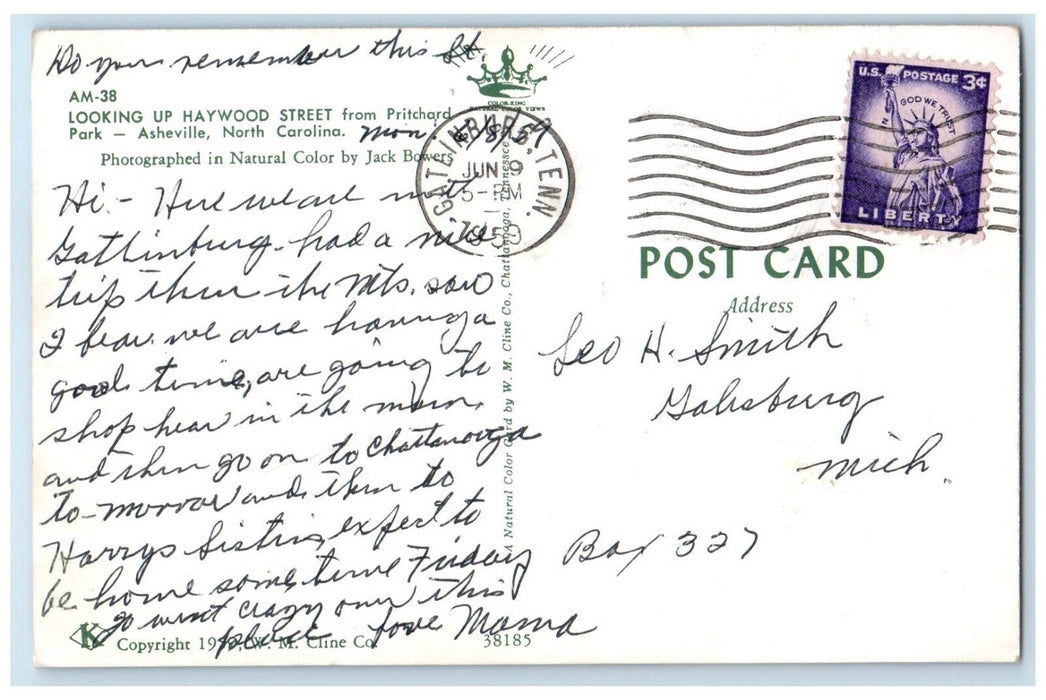 Do your remember this St.
AM-38
LOOKING UP HAYWOOD STREET from Pritchard
Park — Asheville, North Carolina.
Mon. 6/8/59
Photographed in Natural Color by Jack Bowers
Hi - Here we are in
Gatlinburg. had a nice
trip thru the Mts. saw
I bear. we are having a
good time, are going to
shop hear in the morn.
and then go on to Chattanooga
to-morrow and then to
Harrys Sisters, expect to
be home some time Friday
went crazy over this
place love Mama
K Copyright 1959, W. M. Cline Co.
38185
COLOR-KING
NATURAL COLOR VIEWS
A Natural Color Card by W. M. Cline Co., Chattanooga, Tennessee
GATLINBURG, TENN.
JUN 9
5-PM
1959
U.S. POSTAGE 3¢
IN GOD WE TRUST
LIBERTY
POST CARD
Address
Leo H. Smith
Galesburg
Mich.
Box 327